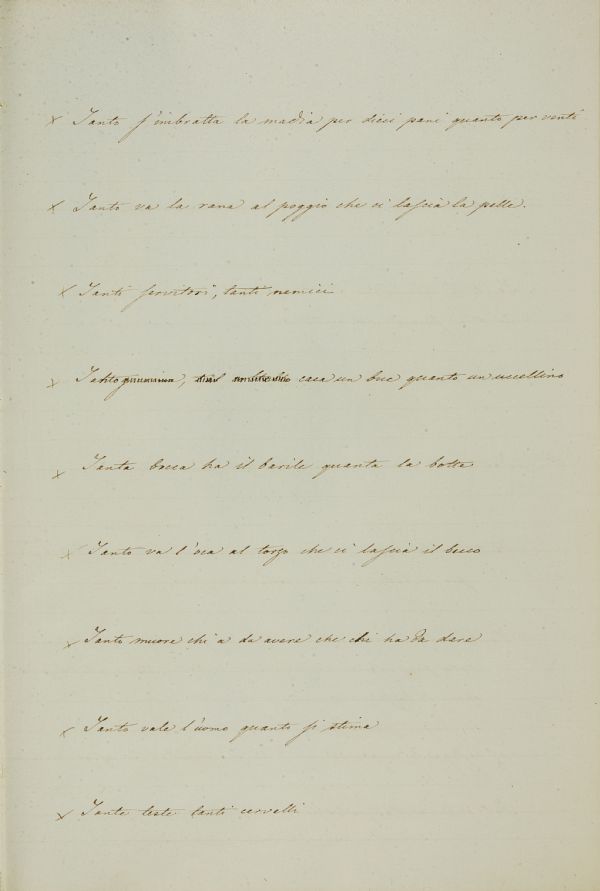 x Tanto s'imbratta la madia per dieci pani quanto per venti
x Tanto va la rana al poggio che ci lascia la pelle.
x Tanti servitori, tanti nemici
x Tanto caca un bue quanto un uccellino
x Tanta bocca ha il barile quanta la botte
x Tanto va l'oca al torso che ci lascia il becco
x Tanto muore chi a da avere che chi ha da dare
x Tanto vale l'uomo quanto si stima
x Tante teste tanti cervelli